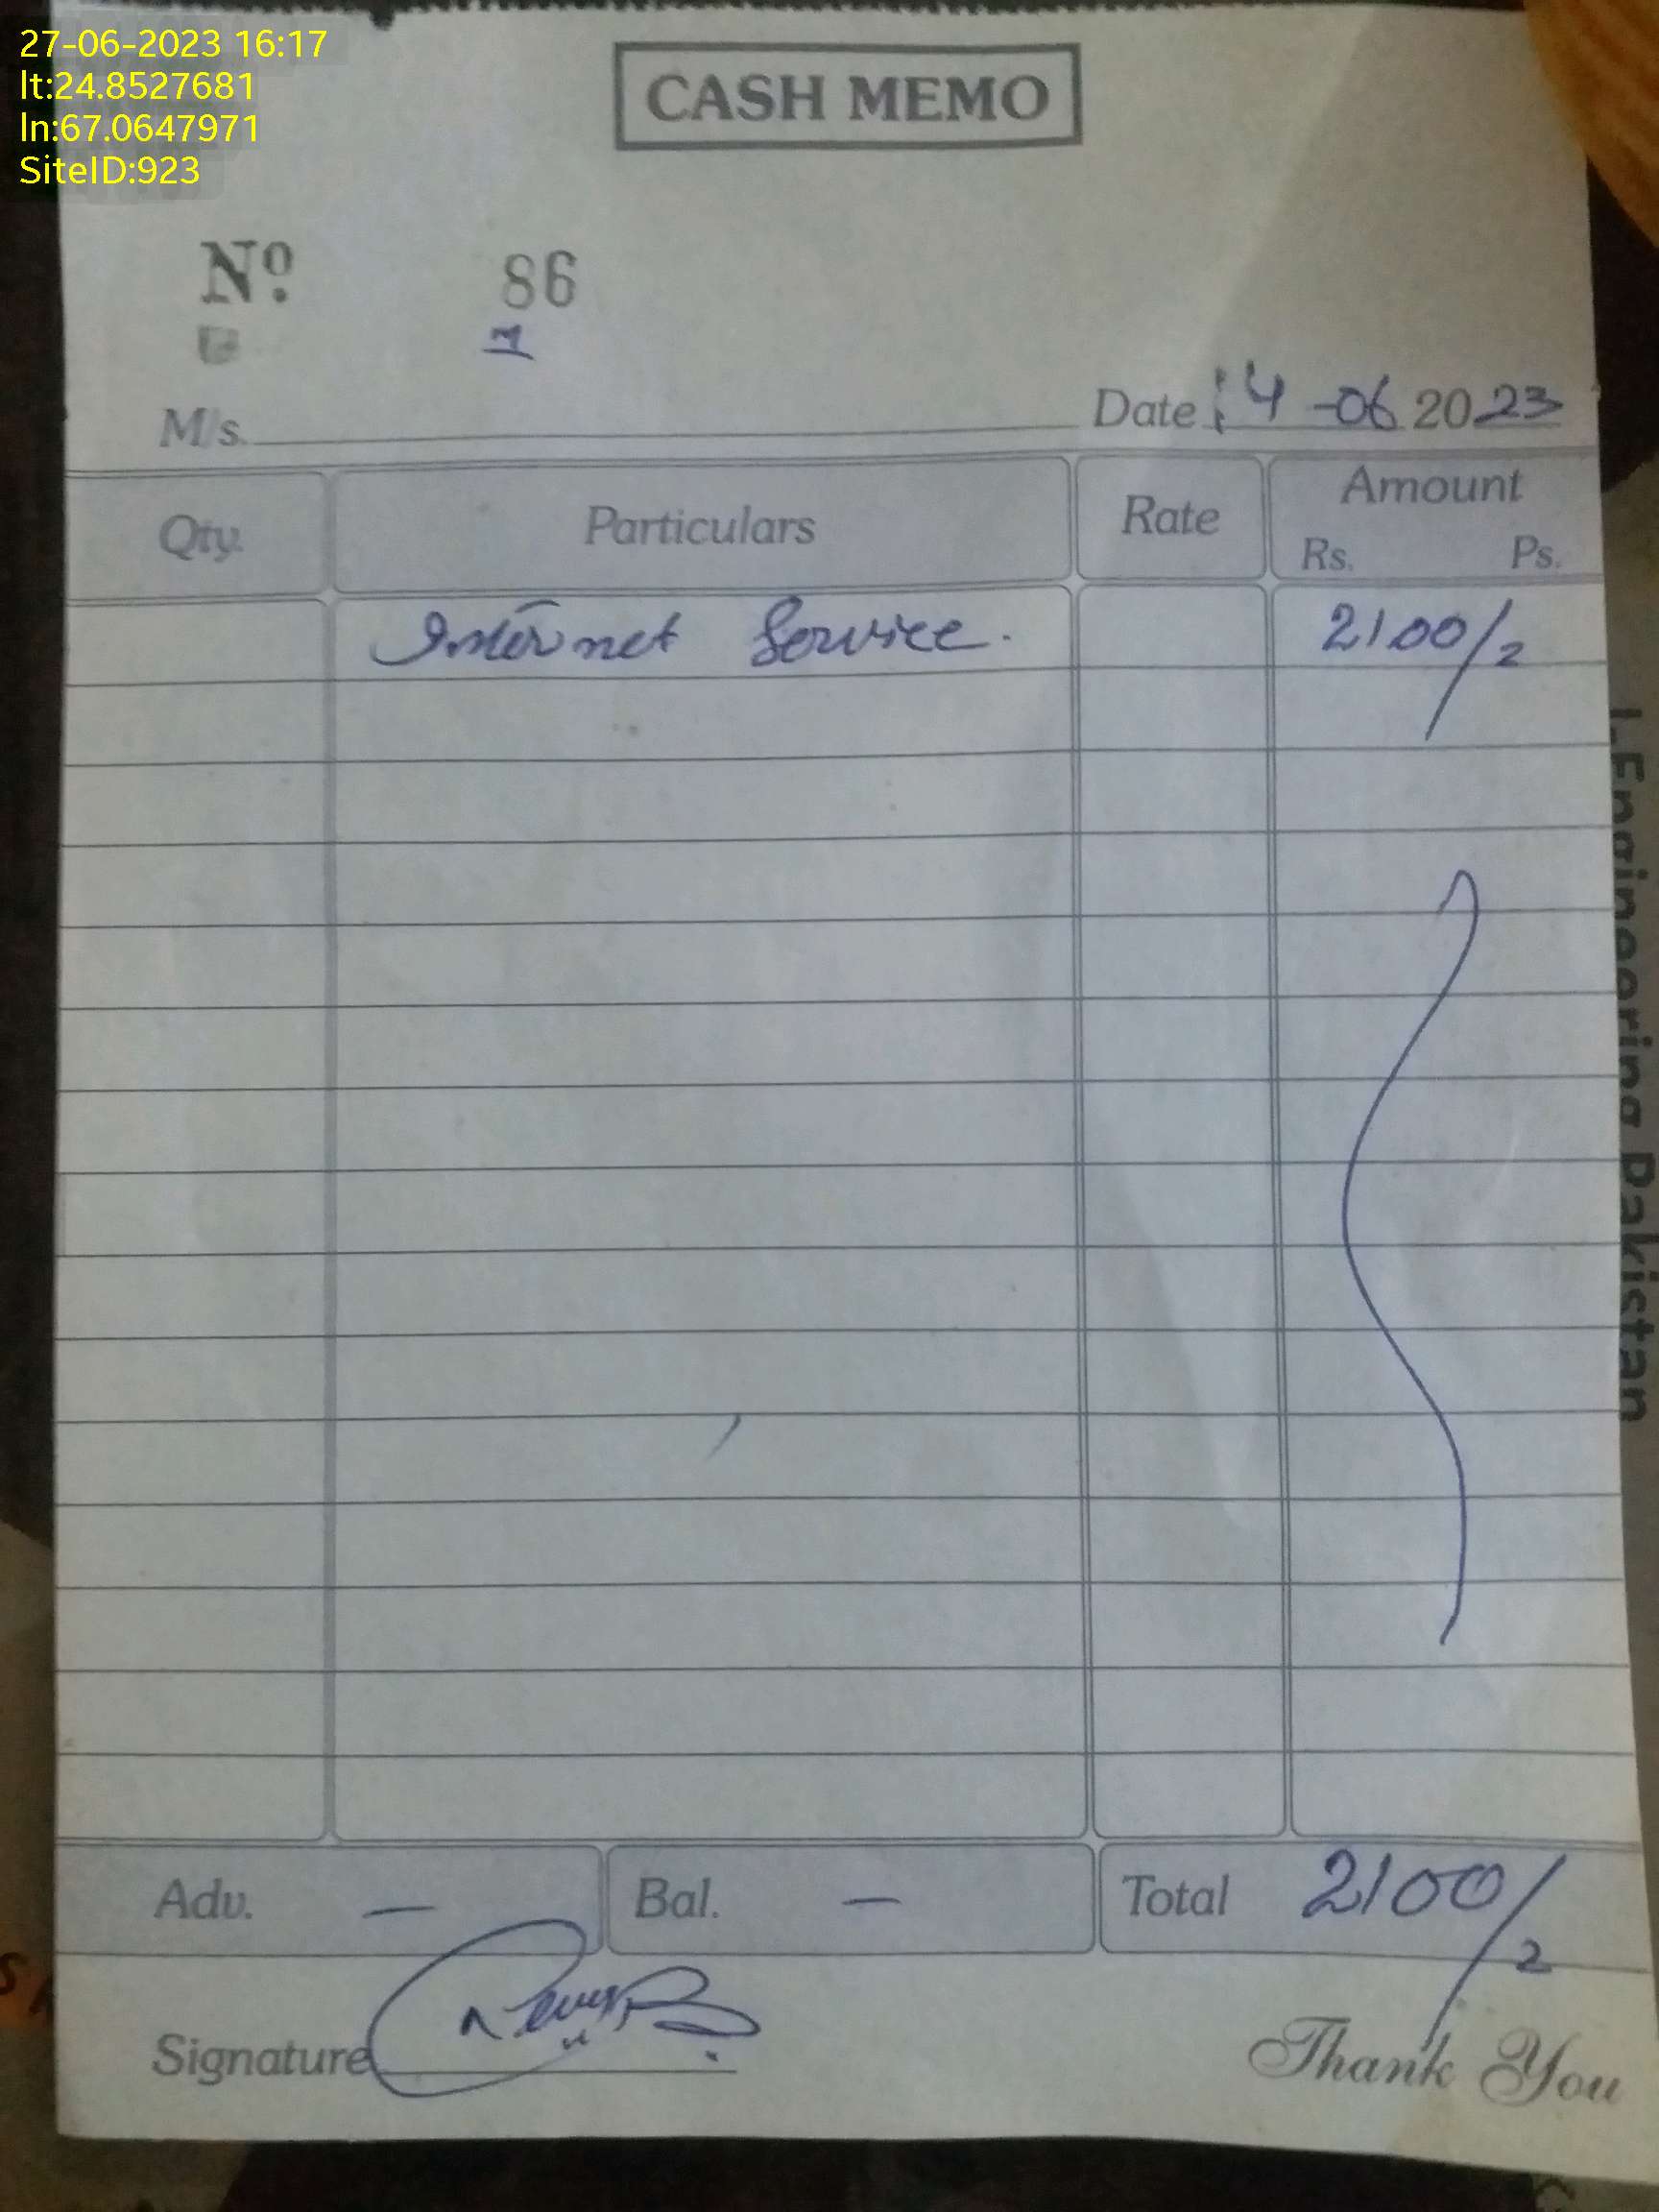 27-06-2023 16:17
lt:24.8527681
ln:67.0647971
SiteID:923
CASH MEMO
Nº 86
M/s. Date 14-06 2023
Qty. Particulars Rate Amount
Rs. Ps.
Internet Service. 2100/2
Adv. — Bal. — Total 2100/2
Signature
Thank You
I.Engineering Pakistan